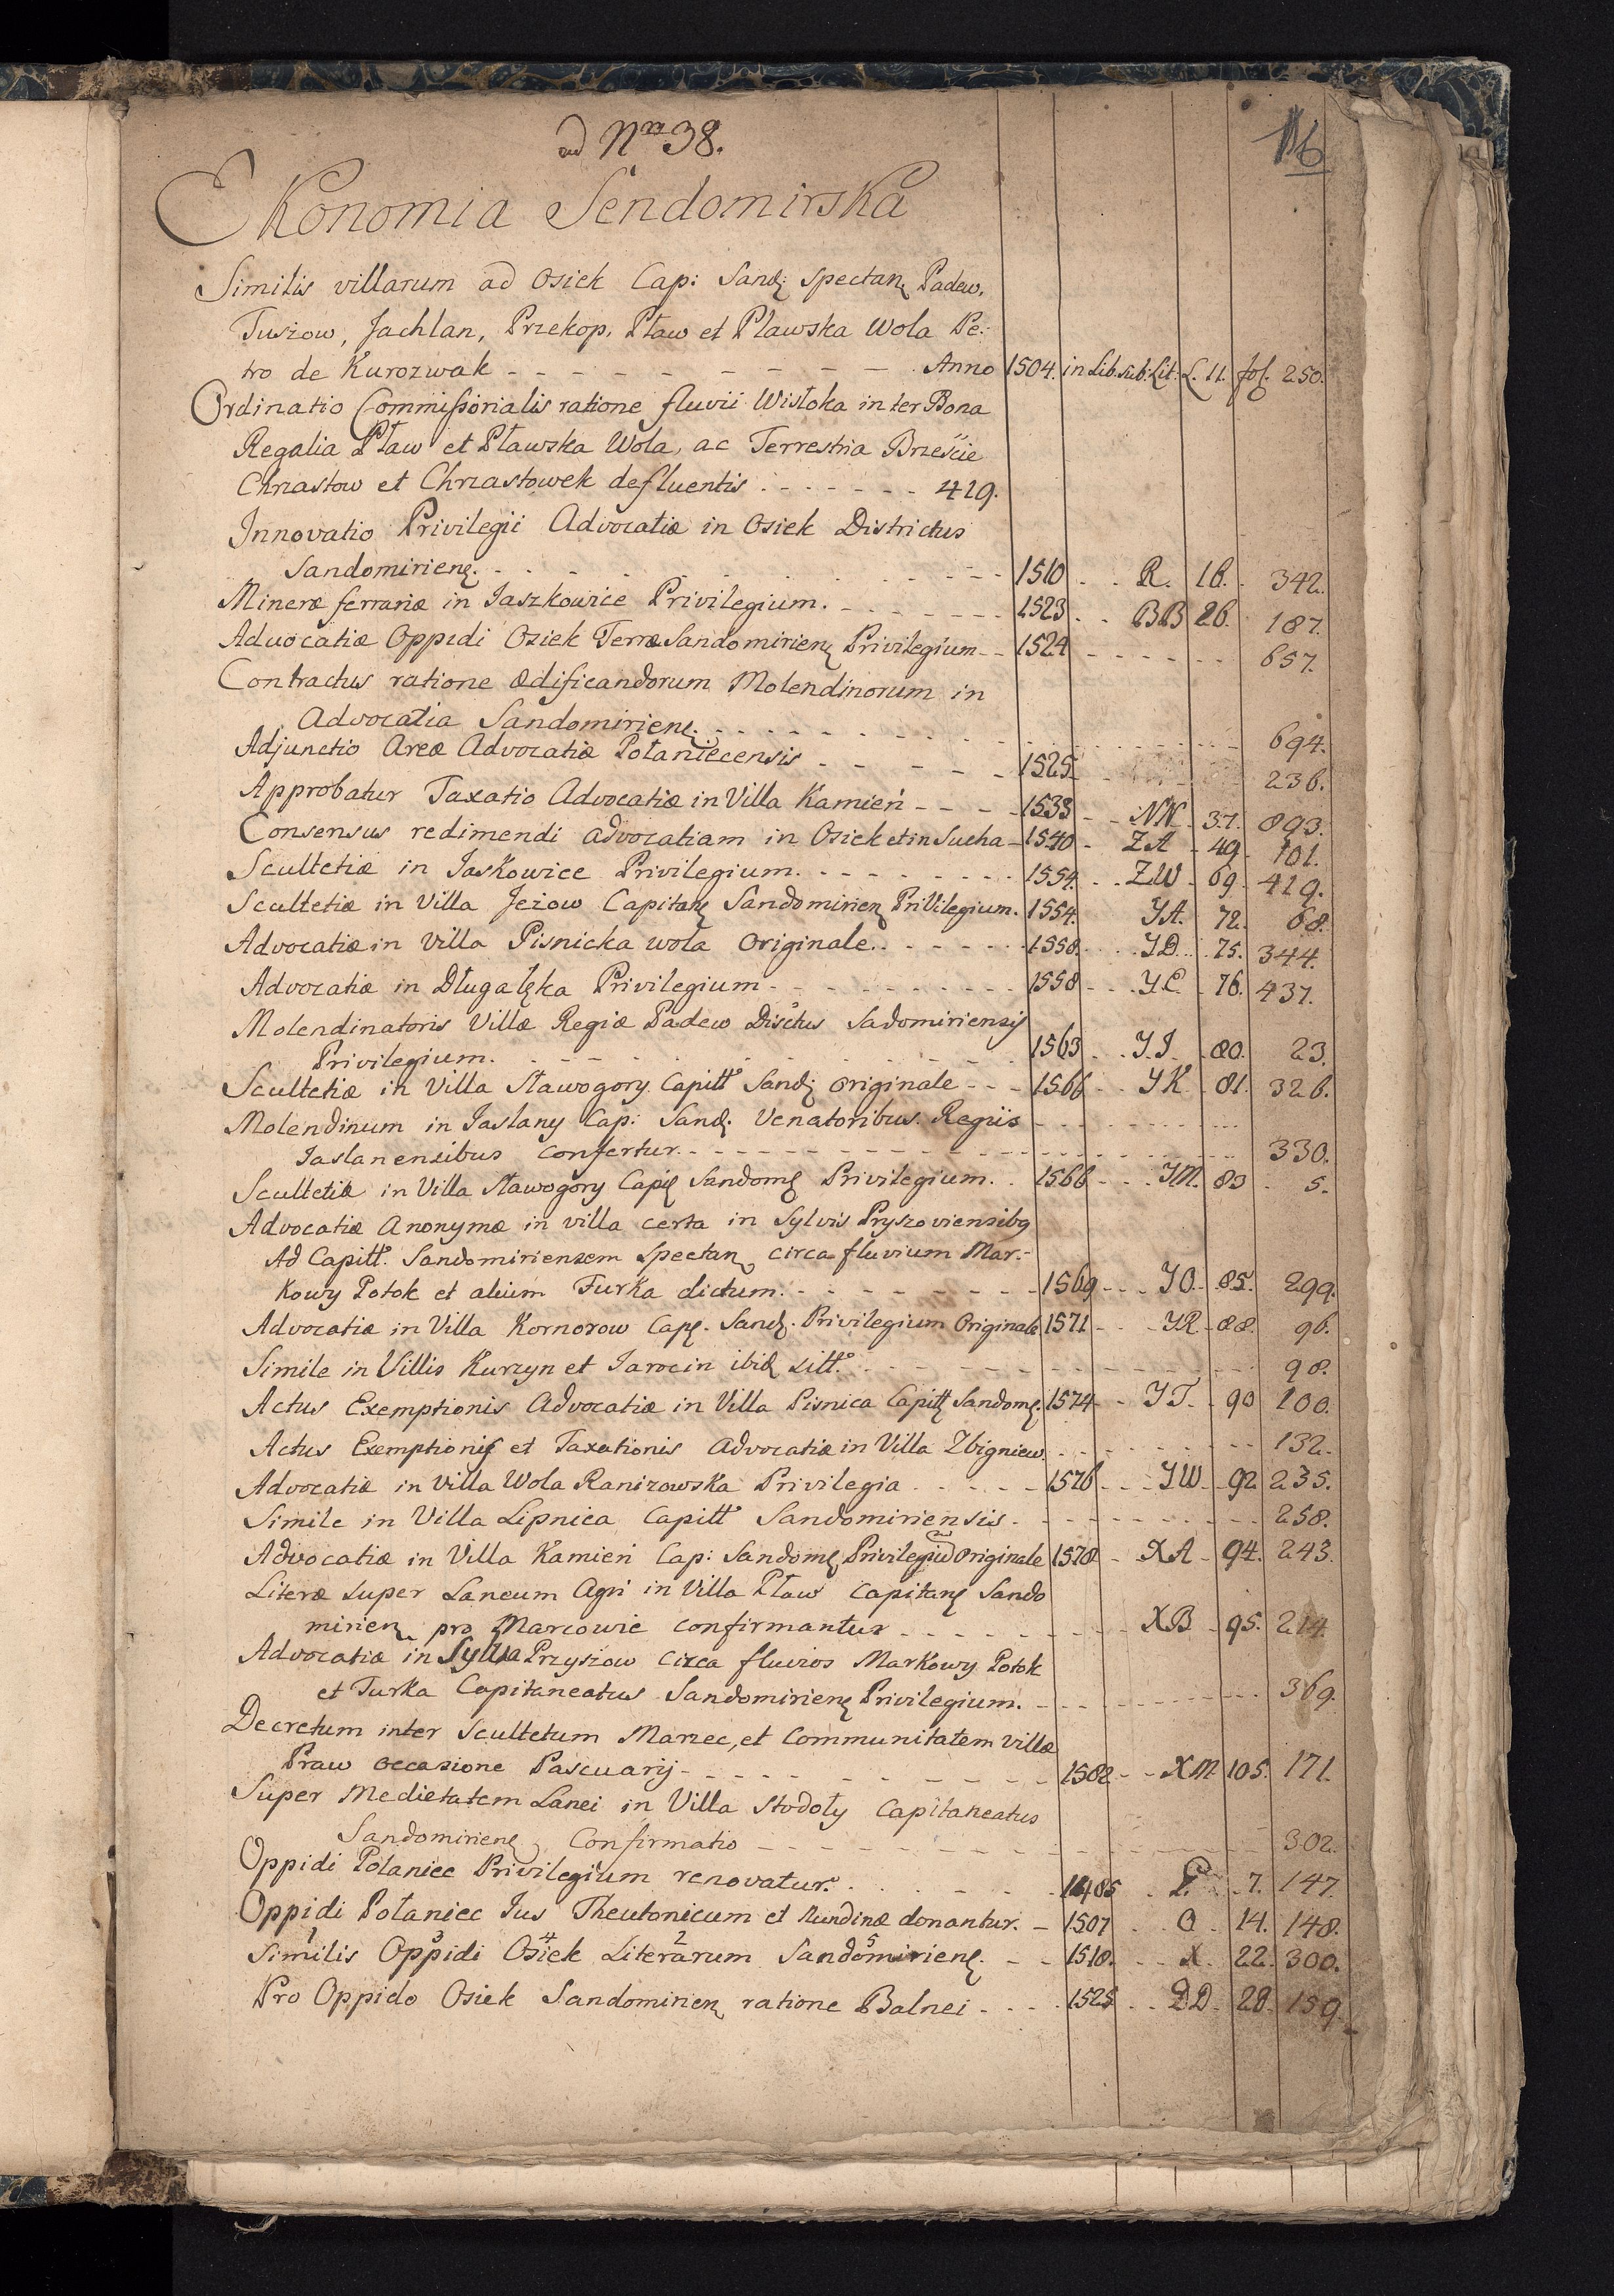 ad Nrm 38.
16
Ekonomia Sendomirska
Similis villarum ad Osiek Cap: Sandę spectanę Padew,
Tuszow, Jachlan, Przekop, Pław et Plawska Wola Pe:
tro de Kurozwak - - - - - - - - Anno 1504. in Lib. sub. Lit: L. 11. fol. 250.
Ordinatio Commissorialis ratione fluvii Wisłoka inter Bona
Regalia Pław et Pławska Wola, ac Terrestria Brzeście
Chrzastow et Chrzastowek defluentis . - - - - - - 419.
Innovatio Privilegii Advocatiæ in Osiek Districtus
Sandomirienę. - - - - - - 1510 . . R. 16. 342.
Mineræ ferrariæ in Jaszkowice Privilegium. - - - - 1523 . . BB 26. 187.
Advocatiæ Oppidi Osiek Terræ Sandomirienę Privilegium - - 1524 - - - - - 657.
Contractus ratione ædificandorum Molendinorum in
Advocatia Sandomirienę. - - - - - - - - - 694.
Adjunctio Areæ Advocatiæ Połaniecensis - - - - - 1525 - - 236.
Approbatur Taxatio Advocatiæ in Villa Kamień - - - 1533 - - NN 37. 893.
Consensus redimendi advocatiam in Osiek et in Sucha - 1540 - ZA - 49. 101.
Scultetiæ in Jaskowice Privilegium. - - - - - - 1554. . . ZW - 69. 419.
Scultetiæ in Villa Jeżow Capitanę Sandomirienę Privilegium. 1554. YA. 72. 68.
Advocatiæ in Villa Pisnicka wola Originale. - - - - - 1558. . . YD. . . 75. 344.
Advocatiæ in Długalęka Privilegium - - - - - - - 1558 - - YE - 76. 437.
Molendinatoris Villæ Regiæ Padew Disctus Sadomiriensis
Privilegium. - - - - - - - - 1563 . . Y.I. . 80. 23.
Scultetiæ in Villa Stawogory Capitt Sandę Originale - - - 1566 - - YK - 81. 326.
Molendinum in Jaslany Cap: Sandę. Venatoribus Regiis - - - - -
Jaslanensibus confertur. - - - - - - - - - 330.
Scultetiæ in Villa Stawogory Capię Sandomę Privilegium. . 1566 - - YM. 83 . 5.
Advocatiæ Anonymæ in villa certa in Sylvis Pryszoviensibꝰ
Ad Capitt. Sandomiriensem spectanę circa fluvium Mar:-
kowy Potok et alium Turka dictum. - - - - - - - 1569 - - YO. 85. 299.
Advocatiæ in Villa Kornorow Capę. Sandę. Privilegium Originale 1571 - - YR - 88. 96.
Simile in Villis Kurzyn et Jarocin ibidę sitt. - - - - - - 98.
Actus Exemptionis Advocatiæ in Villa Pisnica Capittę Sandomę. 1574 - - YT. - 90 100.
Actus Exemptionis et Taxationis Advocatiæ in Villa Zbigniew. - - - - - 132.
Advocatiæ in Villa Wola Ranizowska Privilegia . - - - 1576 - - YW - 92 235.
Simile in Villa Lipnica Capitt Sandomiriensis. - - - - - 258.
Advocatiæ in Villa Kamień Cap: Sandomę Privilegiũ Originale 1578 - XA - 94. 243.
Literæ super Laneum Agri in Villa Pław Capitanę Sando
mirienę pro Marcowie confirmantur - - - - - - XB - 95. 214.
Advocatiæ in Sylva Przyszow circa fluvios Markowy Potok
et Turka Capitaneatus Sandomirienę Privilegium. - - - - - 369.
Decretum inter Scultetum Marzec, et Communitatem Villæ
Praw occasione Pascuarij - - - - - - - - 1582 - - XM 105. 171.
Super Medietatem Lanei in Villa Stodoły Capitaneatus
Sandomirienę Confirmatio - - - - - - - - 302.
Oppidi Połaniec Privilegium renovatur. . - - - - 1485 . P. . 7. 147.
Oppidi Połaniec Jus Theutonicum et Nundinæ donantur. - 1507 . . O . 14. 148.
1 3 4 2 5
Similis Oppidi Osiek Literarum Sandomirienę. - - 1518. . . X . 22. 300.
Pro Oppido Osiek Sandomirienę ratione Balnei - - - . 1525 . . DD - 28. 159.